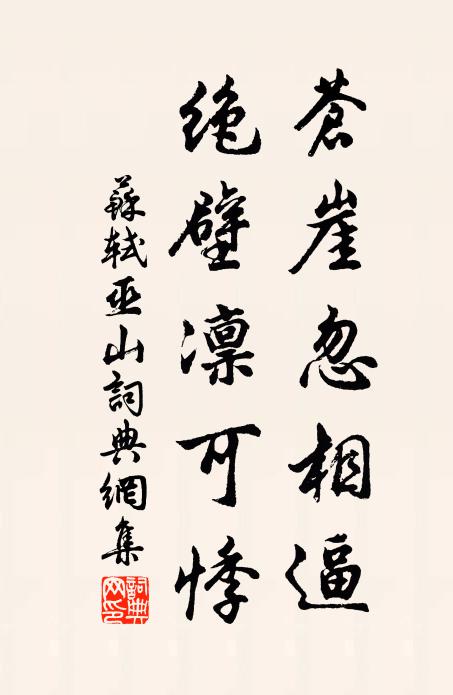 蒼崖忽相逼
絶壁凛可悸
蘇軾巫山詞典網集
詞典網印